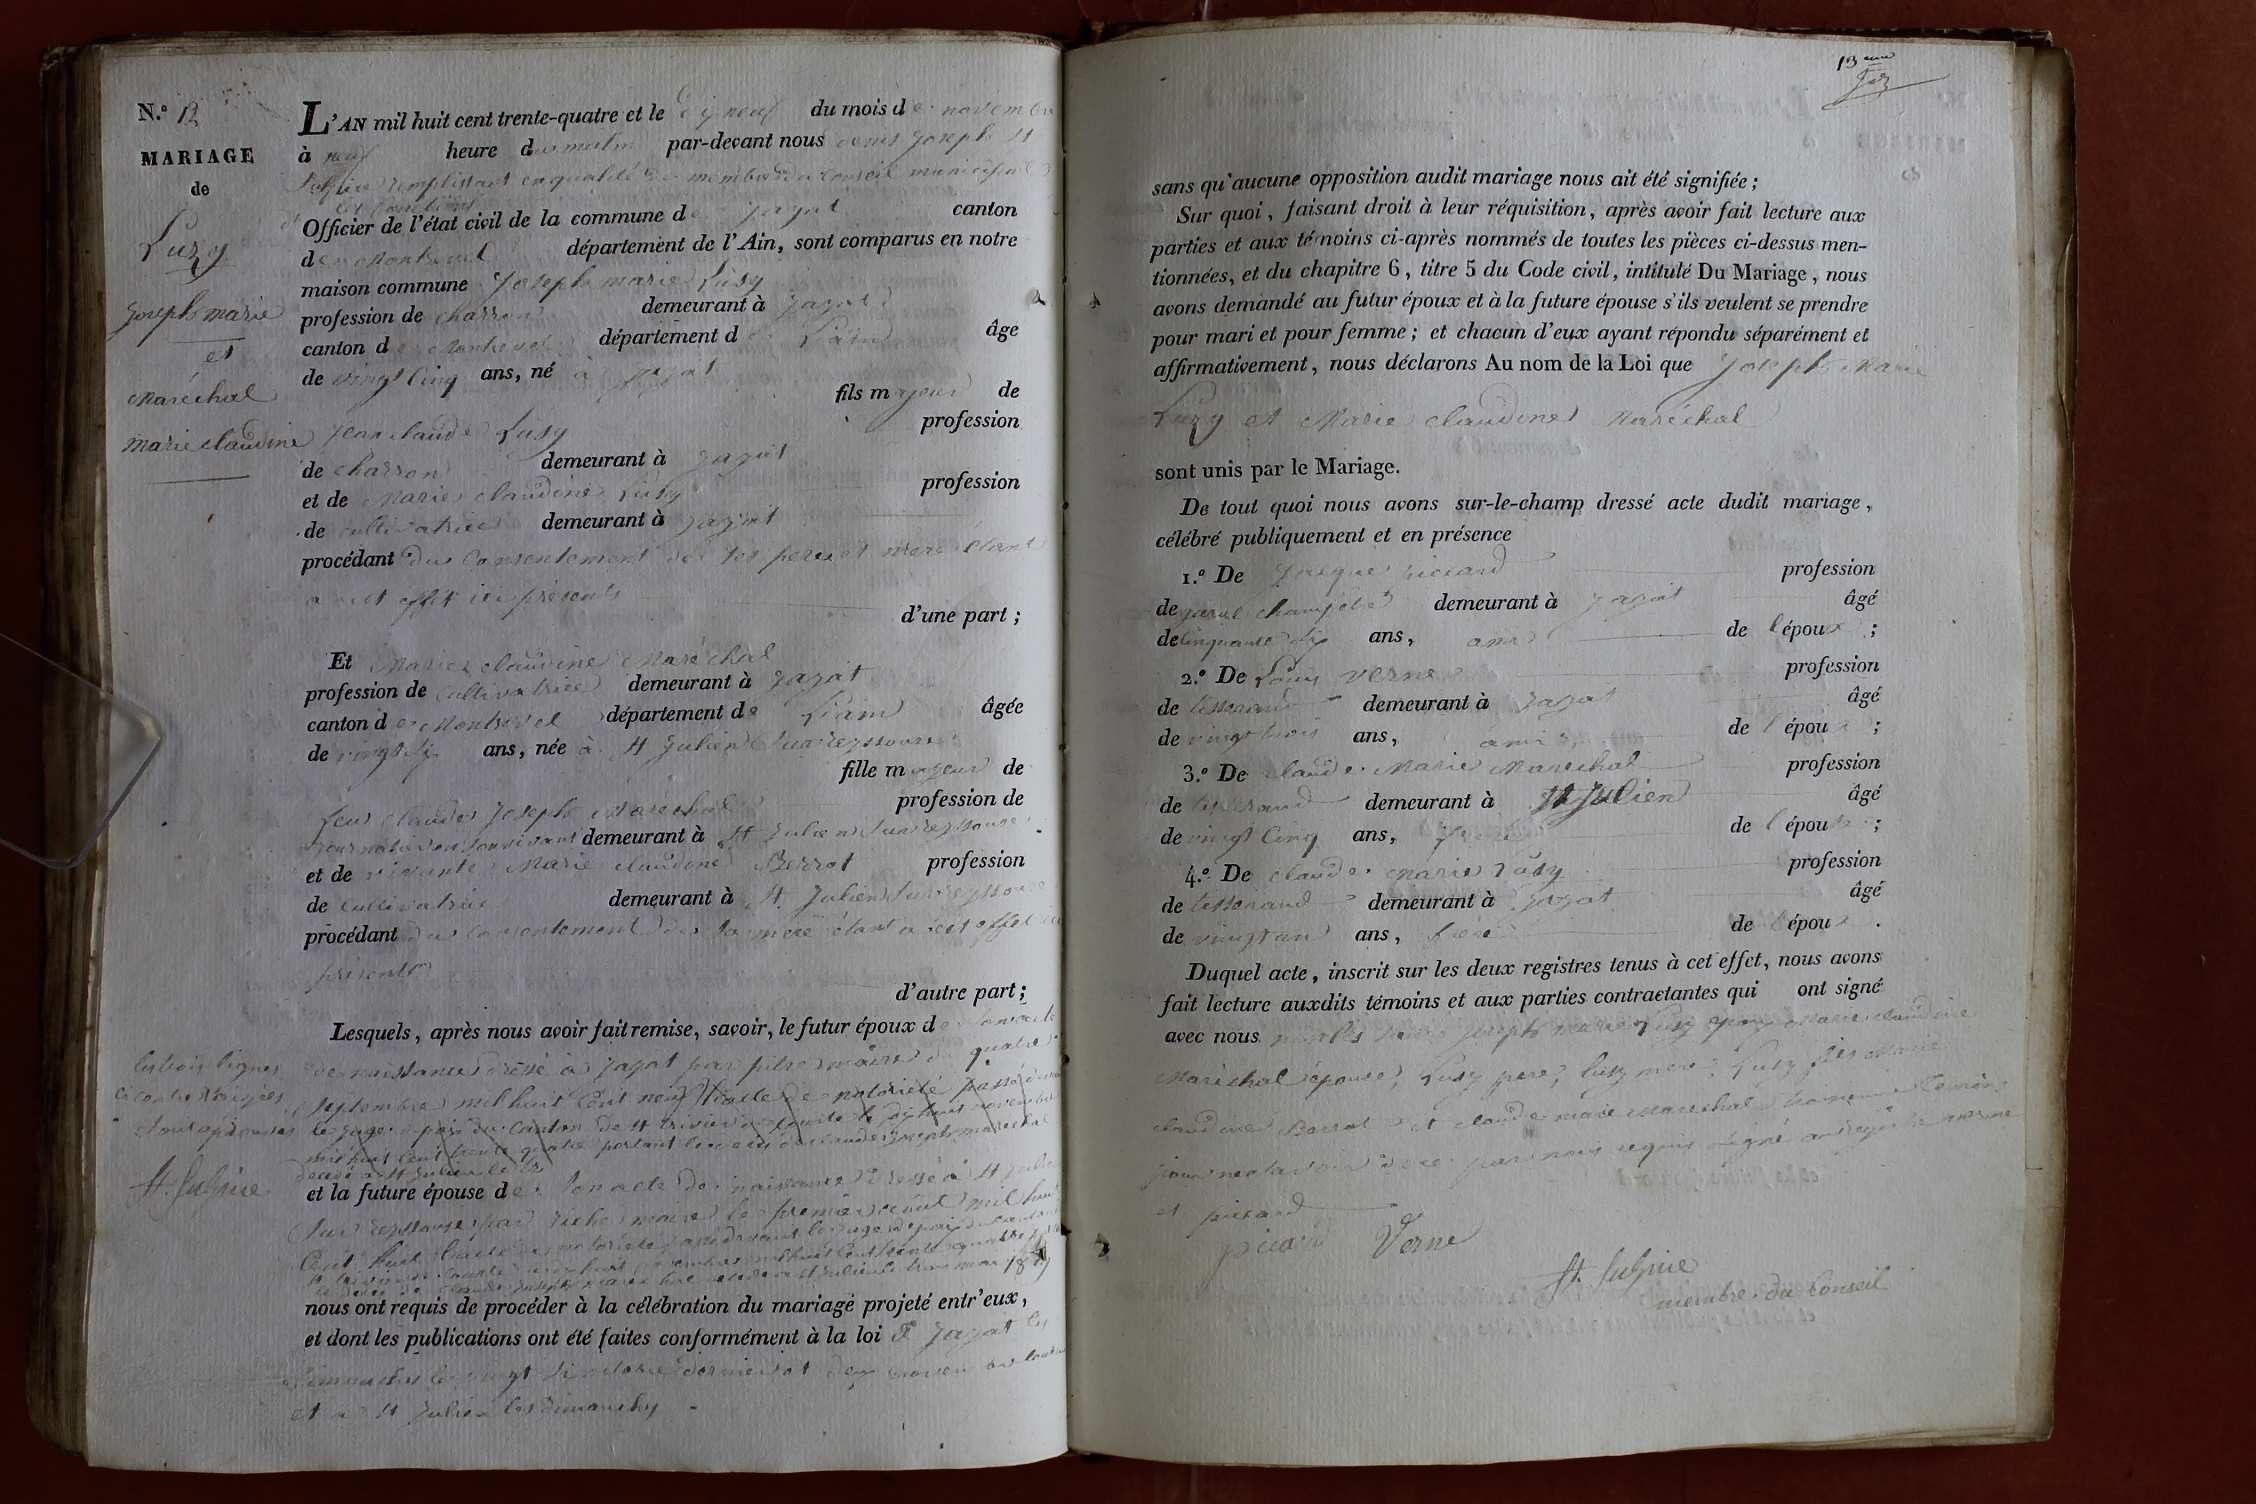 N.° 12
MARIAGE
de
Luzy
Joseph marie
et
Maréchal
Marie claudine
L'AN mil huit cent trente-quatre et le dix neuf du mois de novembre
à neuf heure du matin par-devant nous denis Joseph St
remplissant en qualité de membre du Conseil municipal
les fonctions
Officier de l'état civil de la commune de Jayat canton
de Montrevel département de l'Ain, sont comparus en notre
maison commune Joseph marie Lusy
profession de charron demeurant à Jayat
canton de Montrevel département de L'ain âge
de vingt Cinq ans, né à Jayat
fils majeur de
Jean claude Lusy profession
de charron demeurant à Jayat
et de Marie claudine Lusy profession
de cultivatrice demeurant à Jayat
procédant du Consentement de ses pere et mere étant
a cet effet ici présents
d'une part ;
Et Marie claudine Maréchal
profession de Cultivatrice demeurant à Jayat
canton de Montrevel département de L'ain âgée
de vingt six ans, née à St Julien Sur reyssouze
fille majeur de
feu claude Joseph Maréchal profession de
demeurant à St Julien Sur reyssouze
et de vivante Marie claudine Berrot profession
de Cultivatrice demeurant à St. Julien Sur reyssouze
procédant du Consentement de sa mère étant à cet effet ici
présente
d'autre part ;
Lesquels, après nous avoir fait remise, savoir, le futur époux de son acte
de naissance dressé à Jayat par maire le quatre
Septembre mil huit Cent neuf l'acte de notoriété passé
le juge de paix du Canton de St trivier de Courtes le dix huit novembre
mil huit Cent trente quatre portant le décès de claude Joseph maréchal
décédé a St Julien le
les trois lignes
ci contre rayées
et non approuvées
et la future épouse de son acte de naissance dressé à St Julien
Sur reyssouze par maire le premier août mil huit
Cent huit l'acte de notoriété passé devant le juge de paix du canton
St trivier de Courtes mil huit Cent trente quatre
le décès de claude Joseph maréchal décédé a St Julien le
nous ont requis de procéder à la célébration du mariage projeté entr'eux,
et dont les publications ont été faites conformément à la loi à Jayat les
dimanches le vingt Six octobre dernier et deux novembre
et a St Julien les dimanches
13eme
sans qu'aucune opposition audit mariage nous ait été signifiée ;
Sur quoi, faisant droit à leur réquisition, après avoir fait lecture aux
parties et aux témoins ci-après nommés de toutes les pièces ci-dessus men-
tionnées, et du chapitre 6, titre 5 du Code civil, intitulé Du Mariage, nous
avons demandé au futur époux et à la future épouse s'ils veulent se prendre
pour mari et pour femme ; et chacun d'eux ayant répondu séparément et
affirmativement, nous déclarons Au nom de la Loi que Joseph Marie
Luzy et Marie claudine Maréchal
sont unis par le Mariage.
De tout quoi nous avons sur-le-champ dressé acte dudit mariage,
célébré publiquement et en présence
1.° De Jacque picard profession
de garde champetre demeurant à Jayat âgé
de Cinquante six ans, ami de l'époux ;
2.° De Louis verne profession
de tisserand demeurant à Jayat âgé
de vingt trois ans, ami de l'époux ;
3.° De claude Marie Maréchal profession
de tisserand demeurant à St Julien âgé
de vingt Cinq ans, frere de l'épouse ;
4.° De claude marie Lusy profession
de tisserand demeurant à Jayat âgé
de vingt un ans, frère de l'époux .
Duquel acte, inscrit sur les deux registres tenus à cet effet, nous avons
fait lecture auxdits témoins et aux parties contractantes qui ont signé
avec nous joseph marie Luzy epoux Marie claudine
Maréchal épouse, Luzy pere, luzy mere, Luzy Marie
claudine Berrot et claude marie Marechal témoins
pour ne savoir de ce par nous requis signé verne
et picard
picard Verne
membre du Conseil